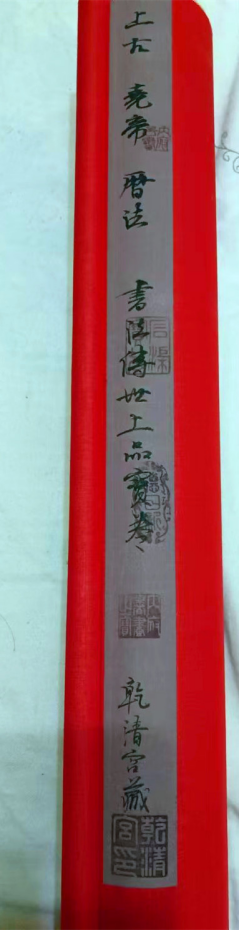 上古 堯帝 曆法 書法傳世上品寶卷 乾清宮藏
乾清宮印